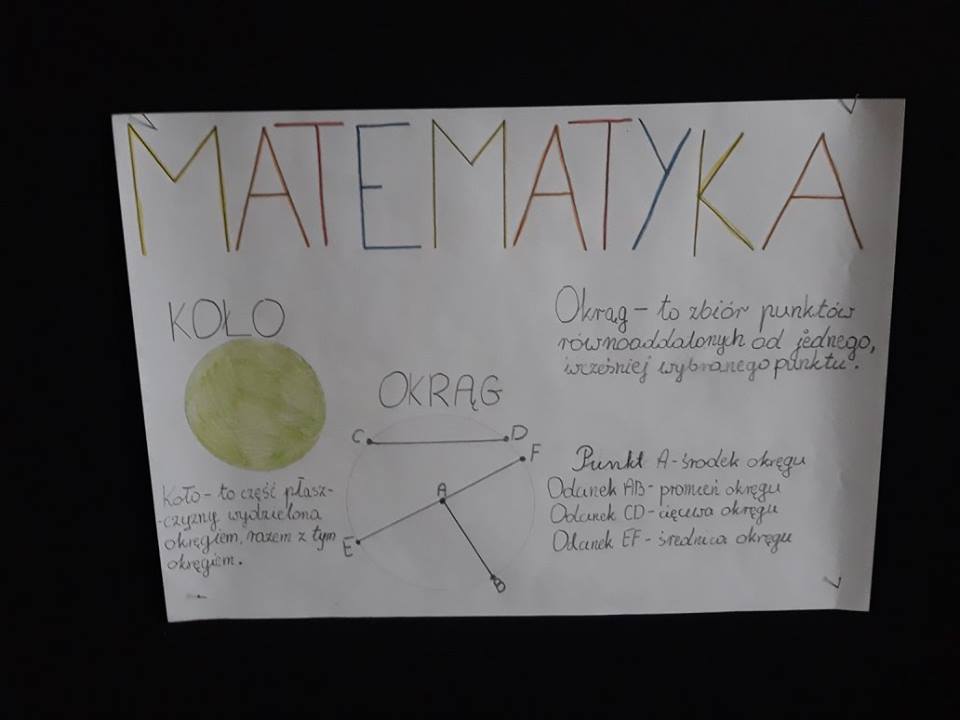 MATEMATYKA
KOŁO
Koło - to część płasz-
-czyzny wydzielona
okręgiem, razem z tym
okręgiem.
OKRĄG
C
D
F
A
E
B
Okrąg - to zbiór punktów
równooddalonych od jednego,
wcześniej wybranego punktu.
Punkt A - środek okręgu
Odcinek AB - promień okręgu
Odcinek CD - cięciwa okręgu
Odcinek EF - średnica okręgu